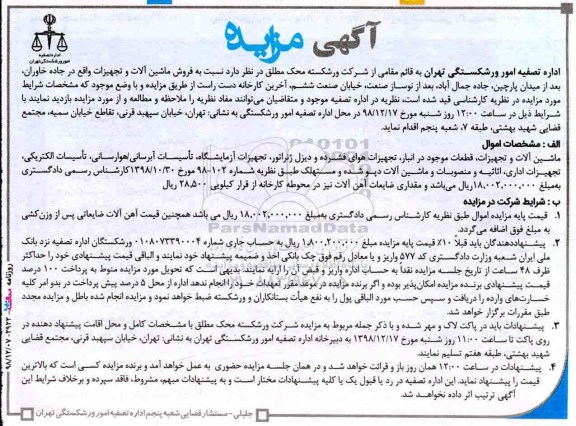 آگهی مزایده
اداره تصفیه
امور ورشکستگی تهران
اداره تصفیه امور ورشکستگی تهران به قائم مقامی از شرکت ورشکسته محک مطلق در نظر دارد نسبت به فروش ماشین آلات و تجهیزات واقع در جاده خاوران،
بعد از میدان پارچین، جاده جمال آباد، بعد از نوساز صنعت، خیابان صنعت ششم، آخرین کارخانه دست راست از طریق مزایده و با وضع موجود که مشخصات شرایط
مورد مزایده در نظریه کارشناسی قید شده است، نظریه در اداره تصفیه موجود و متقاضیان می‌توانند مفاد نظریه را ملاحظه و مطالعه و از مورد مزایده بازدید نمایند با
شرایط ذیل در ساعت ۱۲:۰۰ روز شنبه مورخ ۹۸/۱۲/۱۷ در محل اداره تصفیه امور ورشکستگی به نشانی: تهران، خیابان سپهبد قرنی، تقاطع خیابان سمیه، مجتمع
قضایی شهید بهشتی، طبقه ۷، شعبه پنجم اقدام نماید.
الف : مشخصات اموال
ماشین آلات و تجهیزات، قطعات موجود در انبار، تجهیزات هوای فشرده و دیزل ژنراتور، تجهیزات آزمایشگاه، تأسیسات آبرسانی/هوارسانی، تأسیسات الکتریکی،
تجهیزات اداری، اثاثیه و منصوبات و ماشین آلات دپو شده و مستهلک طبق نظریه شماره ۱۰۲-۹۸ مورخ ۱۳۹۸/۱۰/۳۰ کارشناس رسمی دادگستری
به‌مبلغ ۱۸,۰۰۲,۰۰۰,۰۰۰ ریال می‌باشد و مقداری ضایعات آهن آلات نیز در محوطه کارخانه از قرار کیلویی ۲۸,۵۰۰ ریال
ب : شرایط شرکت در مزایده
۱. قیمت پایه مزایده اموال طبق نظریه کارشناس رسمی دادگستری به‌مبلغ ۱۸,۰۰۲,۰۰۰,۰۰۰ ریال می باشد همچنین قیمت آهن آلات ضایعاتی پس از وزن کشی
به مبلغ فوق اضافه می‌گردد.
۲. پیشنهاددهندگان باید قبلاً ۱۰٪ قیمت پایه مزایده مبلغ ۱,۸۰۰,۲۰۰,۰۰۰ ریال به حساب جاری شماره ۰۱۰۸۰۷۳۳۹۰۰۴ ورشکستگان اداره تصفیه نزد بانک
ملی ایران شعبه وزارت دادگستری کد ۵۷۷ واریز و یا معادل رقم فوق چک بانکی اخذ و ضمیمه پیشنهاد خود نمایند و الباقی قیمت پیشنهادی خود را حداکثر
ظرف ۴۸ ساعت از تاریخ جلسه مزایده نقداً به حساب اداره واریز و قبض آن را ارایه نمایند. بدیهی است که تحویل مورد مزایده منوط به پرداخت ۱۰۰ درصد
قیمت پیشنهادی برنده مزایده امکان‌پذیر بوده و اگر برنده مزایده در موعد مقرر تعهدات خود را انجام ندهد اداره از محل ۵ درصد پیش پرداخت در بدو امر کلیه
خسارت‌های وارده را دریافت و سپس حسب مورد الباقی پول را به نفع هیأت بستانکاران و ورشکسته ضبط خواهد نمود و مزایده انجام شده باطل و مزایده مجدد
طبق مقررات برگزار خواهد شد.
۳. پیشنهادات باید در پاکت لاک و مهر شده و با ذکر جمله مربوط به مزایده شرکت ورشکسته محک مطلق با مشخصات کامل و محل اقامت پیشنهاد دهنده در
روی پاکت تا ساعت ۱۱:۰۰ روز شنبه مورخ ۱۳۹۸/۱۲/۱۷ به دبیرخانه اداره تصفیه امور ورشکستگی تهران به نشانی: تهران، خیابان سپهبد قرنی، مجتمع قضایی
شهید بهشتی، طبقه هفتم تسلیم نمایند.
۴. پیشنهادات در ساعت ۱۲:۰۰ همان روز باز و قرائت خواهد شد و در همان جلسه مزایده حضوری به عمل خواهد آمد و برنده مزایده کسی است که بالاترین
قیمت را پیشنهاد نماید. این اداره تصفیه در رد یا قبول یک یا کلیه پیشنهادات مختار است و به پیشنهادات مبهم، مشروط، فاقد سپرده و برخلاف شرایط این
آگهی ترتیب اثر داده نخواهد شد.
جلیلی - مستشار قضایی شعبه پنجم اداره تصفیه امور ورشکستگی تهران